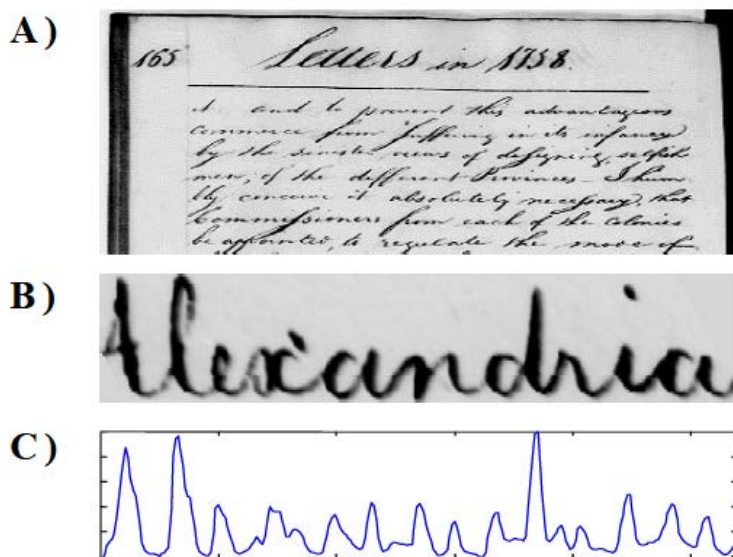 A)
165 Letters in 1758.
it. and to prevent this advantageous
commerce from suffering in its infancy
by the sinister views of designing, selfish
men, of the different Provinces - I hum
bly conceive it absolutely necessary, that
Commissioners from each of the Colonies
be appointed, to regulate the mode of
B)
Alexandria
C)